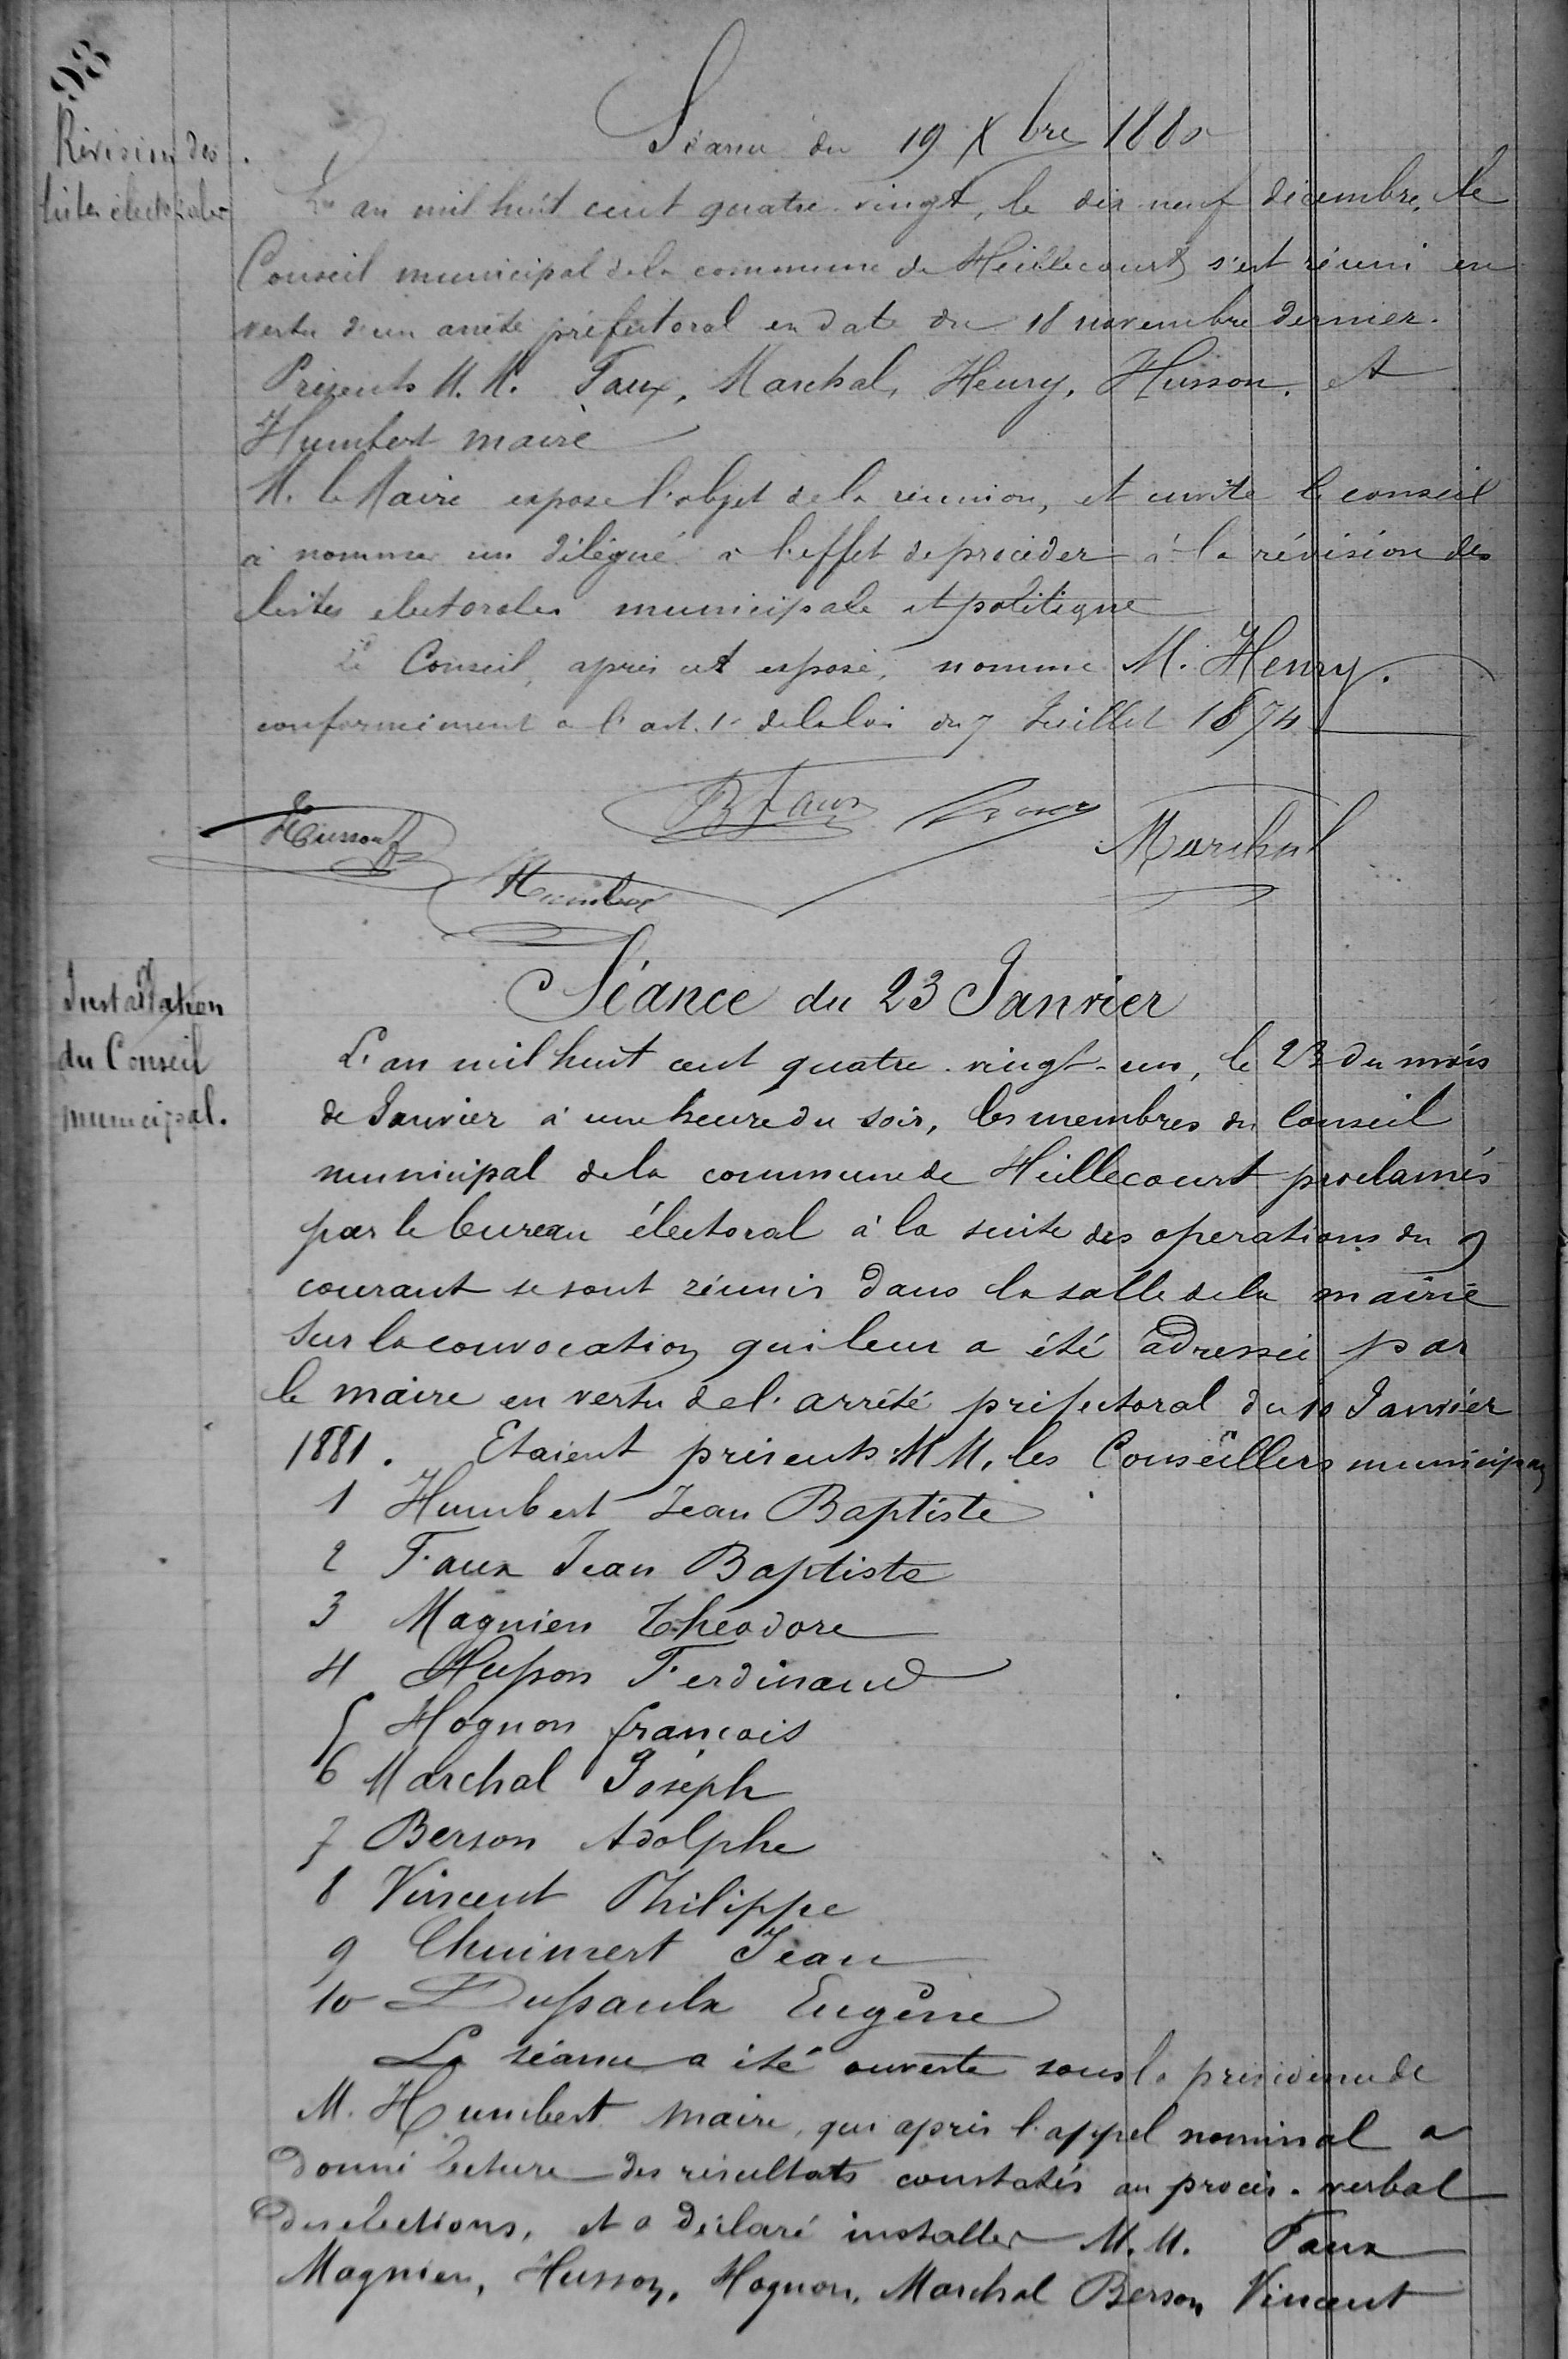 98
Révision des
listes électorales
Séance du 19 Xbre 1880
L'an mil huit cent quatre-vingt, le dix neuf décembre, le
Conseil municipal de la commune de Heillecourt s'est réuni en
vertu d'un arrêté préfectoral en date du 18 novembre dernier.
Présents M.M. Faux, Marchal, Henry, Husson, et
Humbert maire
M. le Maire expose l'objet de la réunion, et invite le conseil
à nommer un délégué à l'effet de procéder à la révision des
listes electorales municipale et politique
Le Conseil, après cet exposé, nomme M. Henry.
conformément a l'art. 1er de la loi du 7 Juillet 1874
Husson f
B Faux
Marchal
Humbert
Installation
du Conseil
municipal.
Séance du 23 Janvier
L'an mil huit cent quatre-vingt-un, le 23 du mois
de Janvier à une heure du soir, les membres du Conseil
municipal de la commune de Heillecourt proclamés
par le bureau électoral à la suite des operations du 9
courant se sont réunis dans la salle de la mairie
Sur la convocation qui leur a été adressée par
le maire en vertu de l'arrêté préfectoral du 10 Janvier
1881. Etaient présents MM. les Conseillers municipaux
1 Humbert Jean Baptiste
2 Faux Jean Baptiste
3 Magnien Théodore
4 Husson Ferdinand
5 Hognon françois
6 Marchal Joseph
7 Berson Adolphe
8 Vincent Philippe
9 Chuimert Jean
10 Dussaulx Eugène
La séance a été ouverte sous la présidence de
M. Humbert maire, qui après l'appel nominal a
donné lecture des résultats constatés au procès-verbal
des elections, et a déclaré installer M.M. Faux
Magnien, Husson, Hognon, Marchal Berson, Vincent